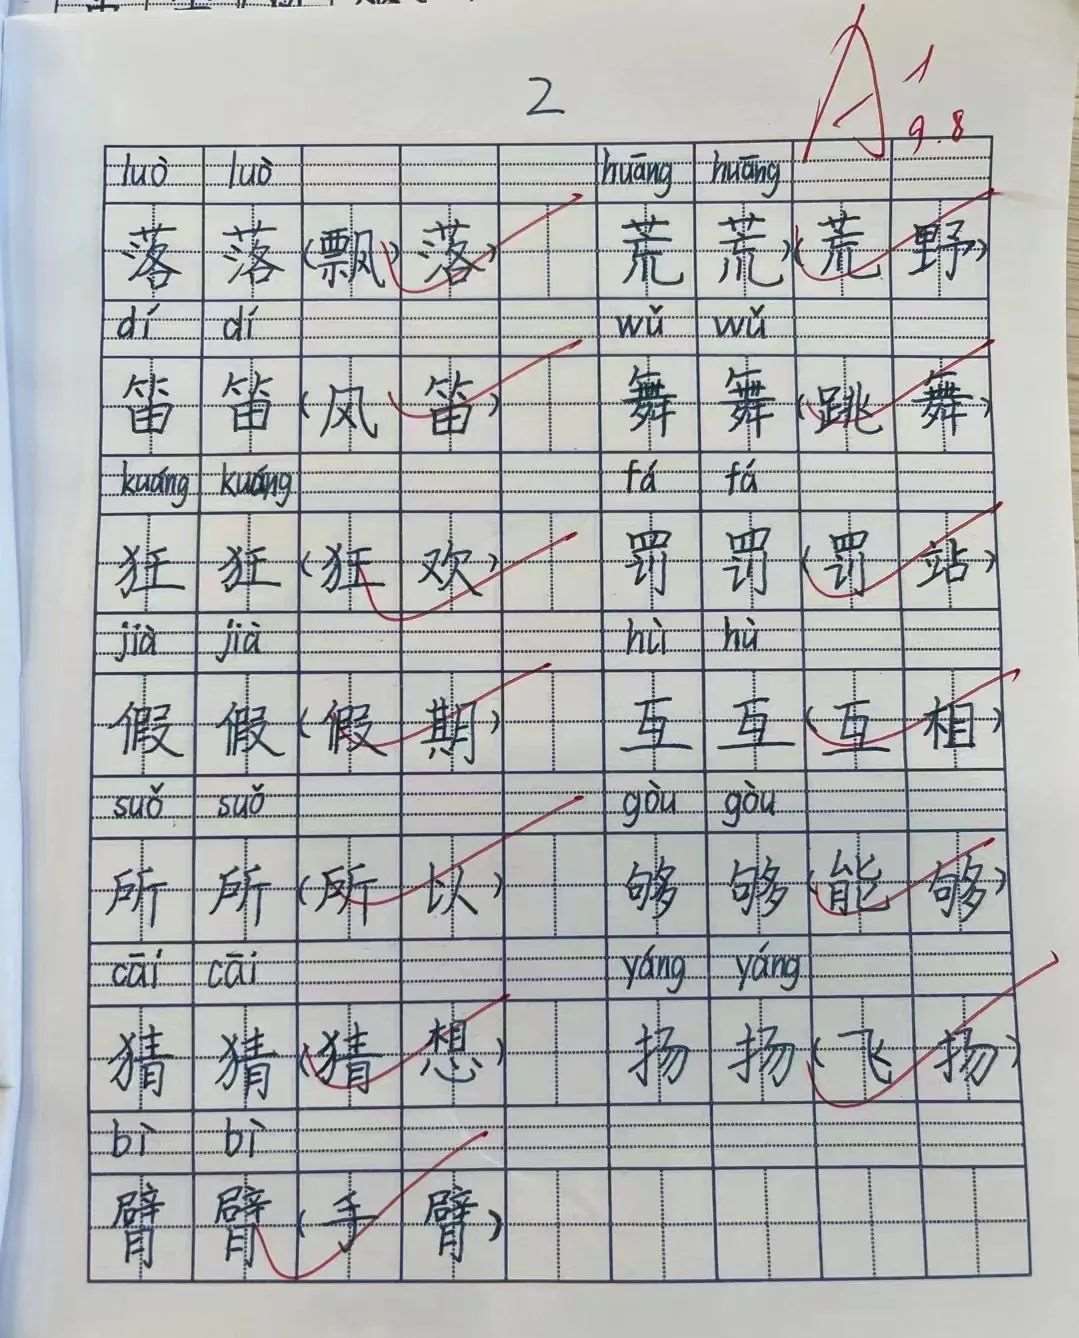 2
A 1
9.8
luò luò huāng huāng
落 落 (飘 落) 荒 荒 (荒 野)
dí dí wǔ wǔ
笛 笛 (风 笛) 舞 舞 (跳 舞)
kuáng kuáng fá fá
狂 狂 (狂 欢) 罚 罚 (罚 站)
jià jià hù hù
假 假 (假 期) 互 互 (互 相)
suǒ suǒ gòu gòu
所 所 (所 以) 够 够 (能 够)
cāi cāi yáng yáng
猜 猜 (猜 想) 扬 扬 (飞 扬)
bì bì
臂 臂 (手 臂)